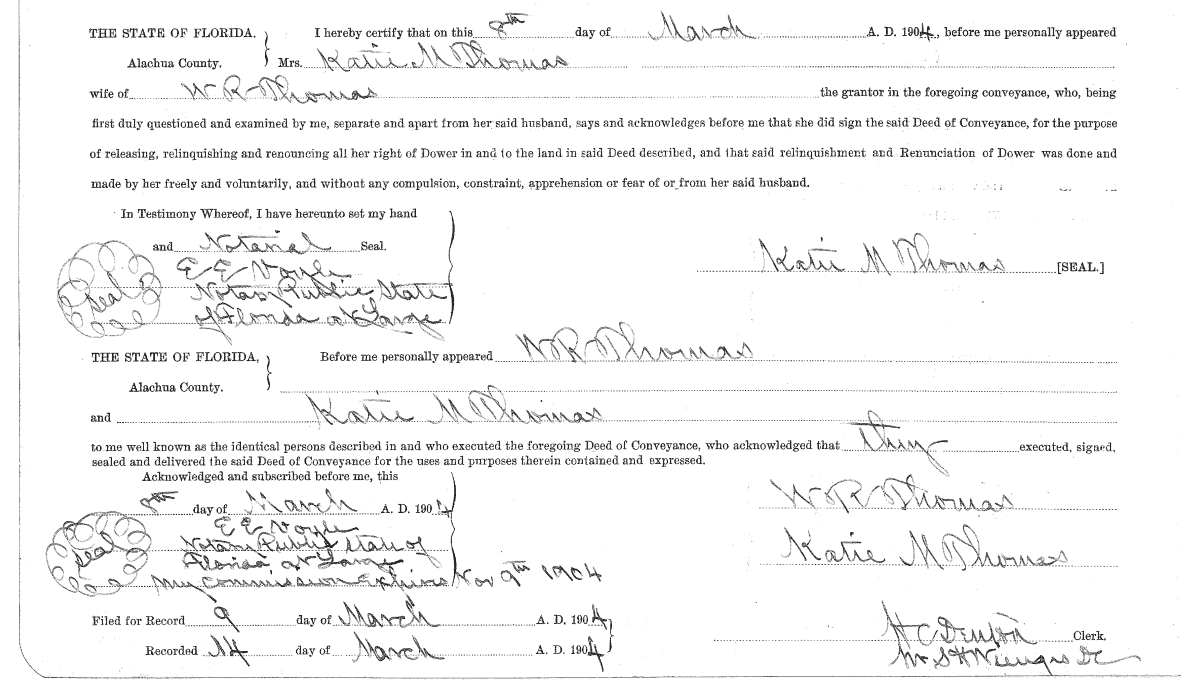 THE STATE OF FLORIDA. I hereby certify that on this 8th day of March A. D. 1904, before me personally appeared
Alachua County. Mrs. Katie M Thomas
wife of W R Thomas the grantor in the foregoing conveyance, who, being
first duly questioned and examined by me, separate and apart from her said husband, says and acknowledges before me that she did sign the said Deed of Conveyance, for the purpose
of releasing, relinquishing and renouncing all her right of Dower in and to the land in said Deed described, and that said relinquishment and Renunciation of Dower was done and
made by her freely and voluntarily, and without any compulsion, constraint, apprehension or fear of or from her said husband.
In Testimony Whereof, I have hereunto set my hand
and Notarial Seal.
Katie M Thomas [SEAL.]
E E Voyle
Seal Notary Public State
of Florida at Large
THE STATE OF FLORIDA, Before me personally appeared W R Thomas
Alachua County.
and Katie M Thomas
to me well known as the identical persons described in and who executed the foregoing Deed of Conveyance, who acknowledged that they executed, signed,
sealed and delivered the said Deed of Conveyance for the uses and purposes therein contained and expressed.
Acknowledged and subscribed before me, this
8th day of March A. D. 1904
W R Thomas
E E Voyle
Seal Notary Public State of
Katie M Thomas
Florida at Large
My Commission Expires Nov 9th 1904
Filed for Record 9 day of March A. D. 1904
H C Denton Clerk.
Recorded 14 day of March A. D. 1904